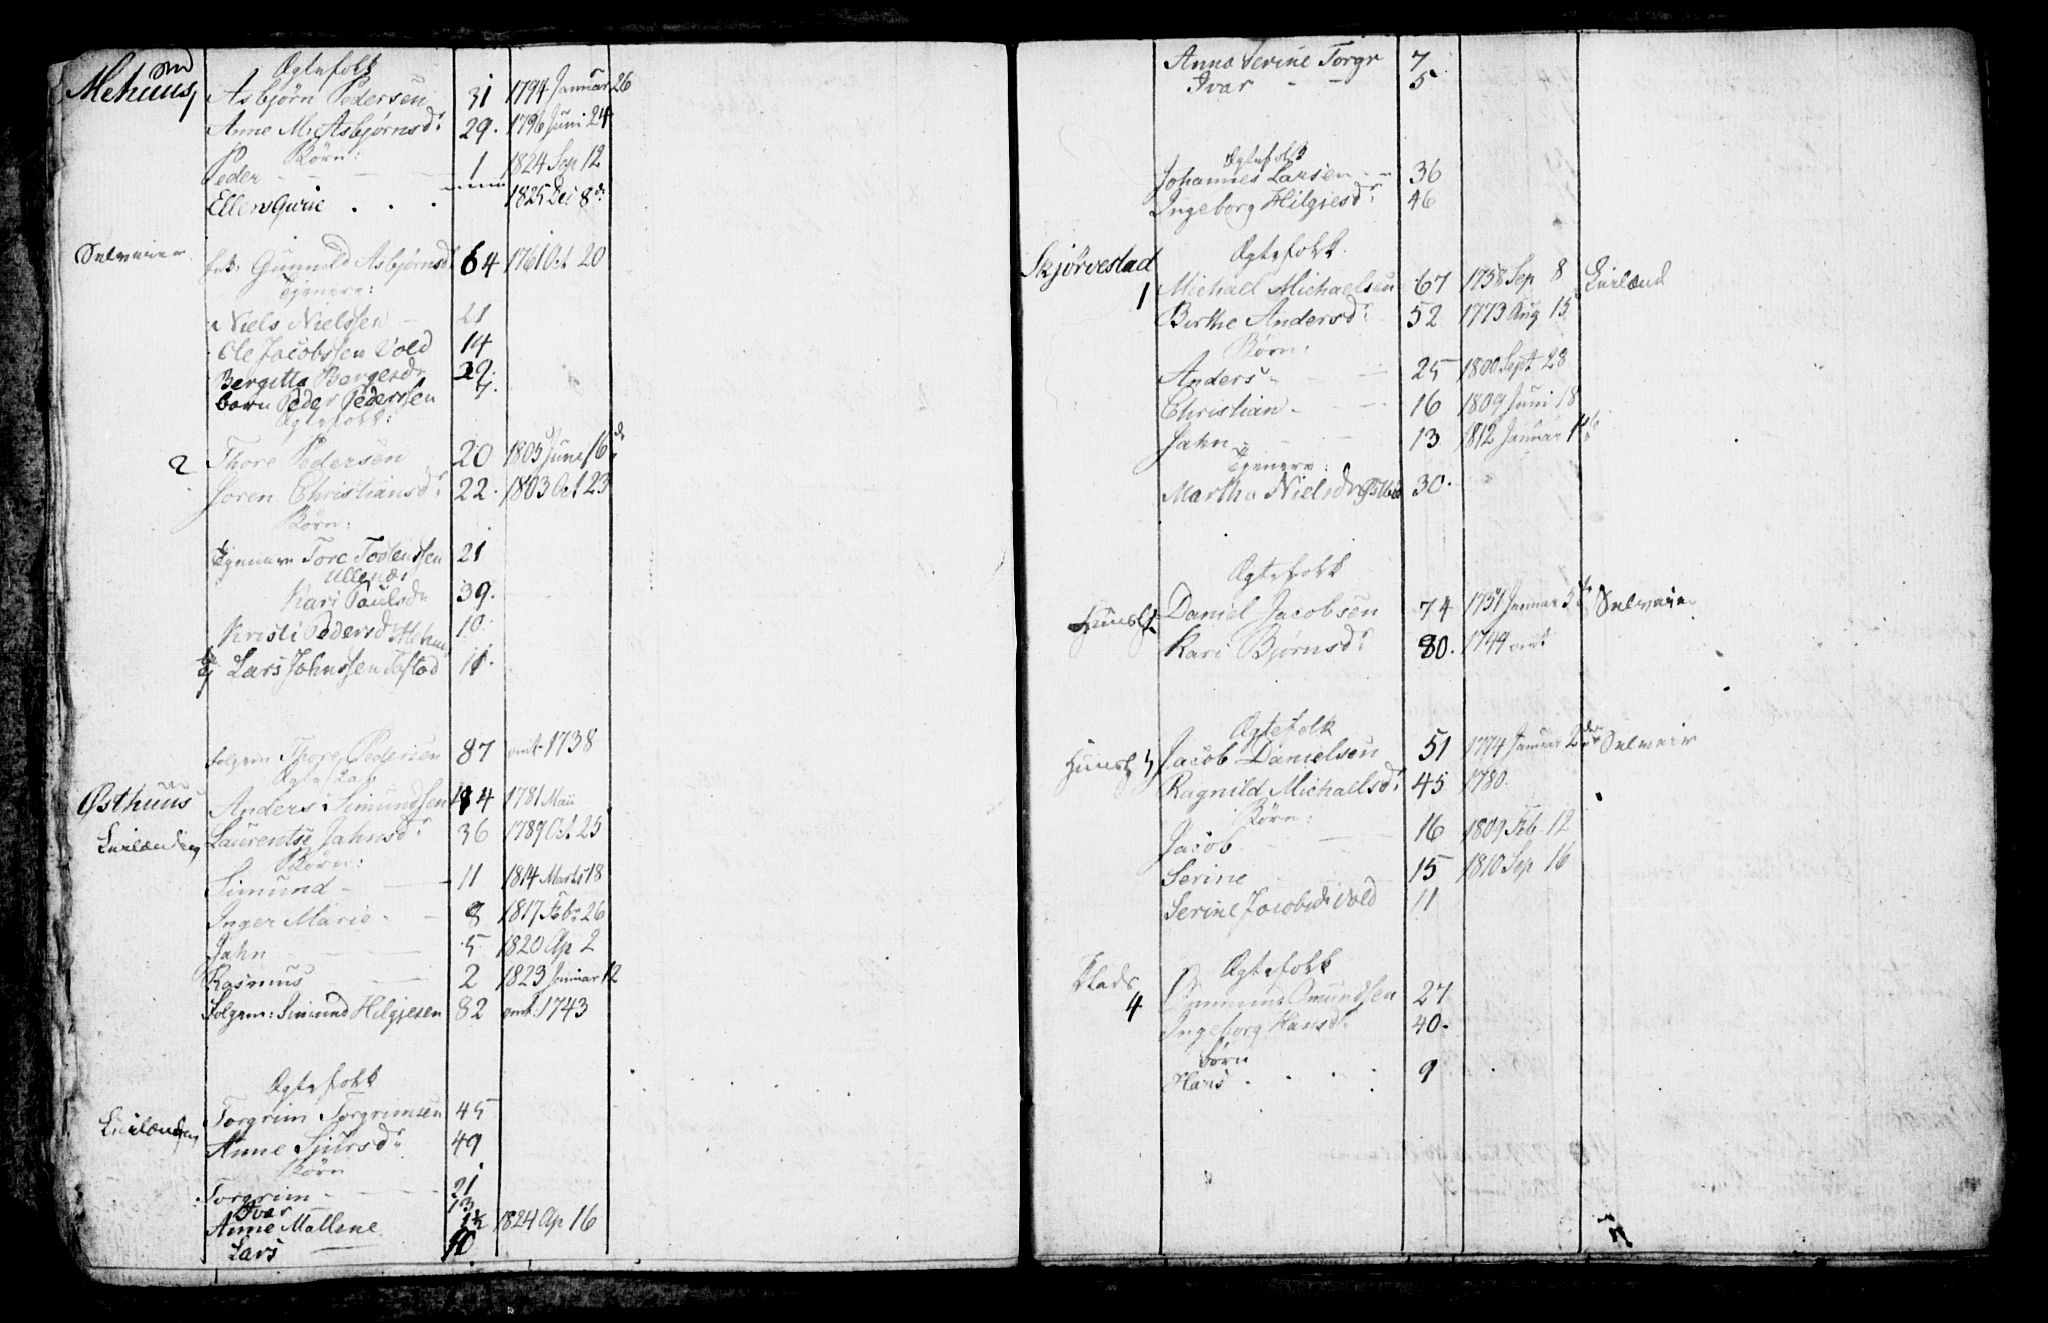 Mehuus
1
Ægtefolk
Asbjørn Pedersen 31 1794 Januar 26
Anne M. Asbjørnsdr 29. 1796 Juni 24
Børn:
Peder - - - 1 1824 Sep 12
Ellen Gurie . . . 1825 Dec 8de
Selveier
Gunnild Asbjørnsdr 64 1761 Oct 20
Tjenere:
Niels Nielssen - 21
Ole Jacobssen Vold 14
Bergitta Bergesdr
barn Peder Pedersen
Ægtefolk:
2 Thore Pedersen 20 1805 June 16de
Joren Christiansdr 22. 1803 Oct 23
Børn:
Tjenere Tore Tostenssen 21
Kari Paulsdr 39.
Kristi Pedersd Mehuus 10
Lars Johnssen Tostad 11.
Folgem Thore Pedersen 87 omt. 1738
Østhuus
Anders Simundsen 44 1781 Maii
Leilænding Laurentse Jahnsdr 36 1789 Oct 25
Børn:
Simund - - 11 1814 Marts 18
Inger Marie - - 8 1817 Febr 26
Jahn - - 5 1820 Ap 2
Rasmus - 2 1823 Januar 12
Folgem: Simund Hilgjesen 82 omt. 1743
Ægtefolk
Torgrim Torgrimsen 45
Leilænding Anne Sjursdr 49
Børn
Torgrim - - - 21
Ivar - 13
Anne Mallene 1½ 1824 Ap 16
Lars - 10
Anna Serine Torgr 7
Ivar - - 5
Ægtefolk
Johannes Larsen - - 36
Ingeborg Hilgjesdr 46
Skjørvestad
1
Ægtefolk
Michael Michaelsen 67 1758 Sep 8 Leilænd
Berthe Andersdr 52 1773 Aug 15
Børn:
Anders - - 25 1800 Sept 28
Christian - - - 16 1809 Juni 18
Jahn - - - 13 1812 Januar
Tjenere:
Martha Nielsdr 30.
Ægtefolk
Daniel Jacobsen 74 1751 Januar Selveier
Kari Bjørnsdr 80. 1744 omt
Ægtefolk
Jacob Danielsen 51 1774 Januar 2den Selveier
Ragnild Michaelsdr 45 1780.
Børn:
Jacob - - 16 1809 Feb. 12
Serine - 15 1810 Sep 16
Serine Jacobsdr Vold 11
Plads
4
Ægtefolk
Ommund Omundsen 27
Ingeborg Hansdr 40.
Børn
Hans . . . . 9